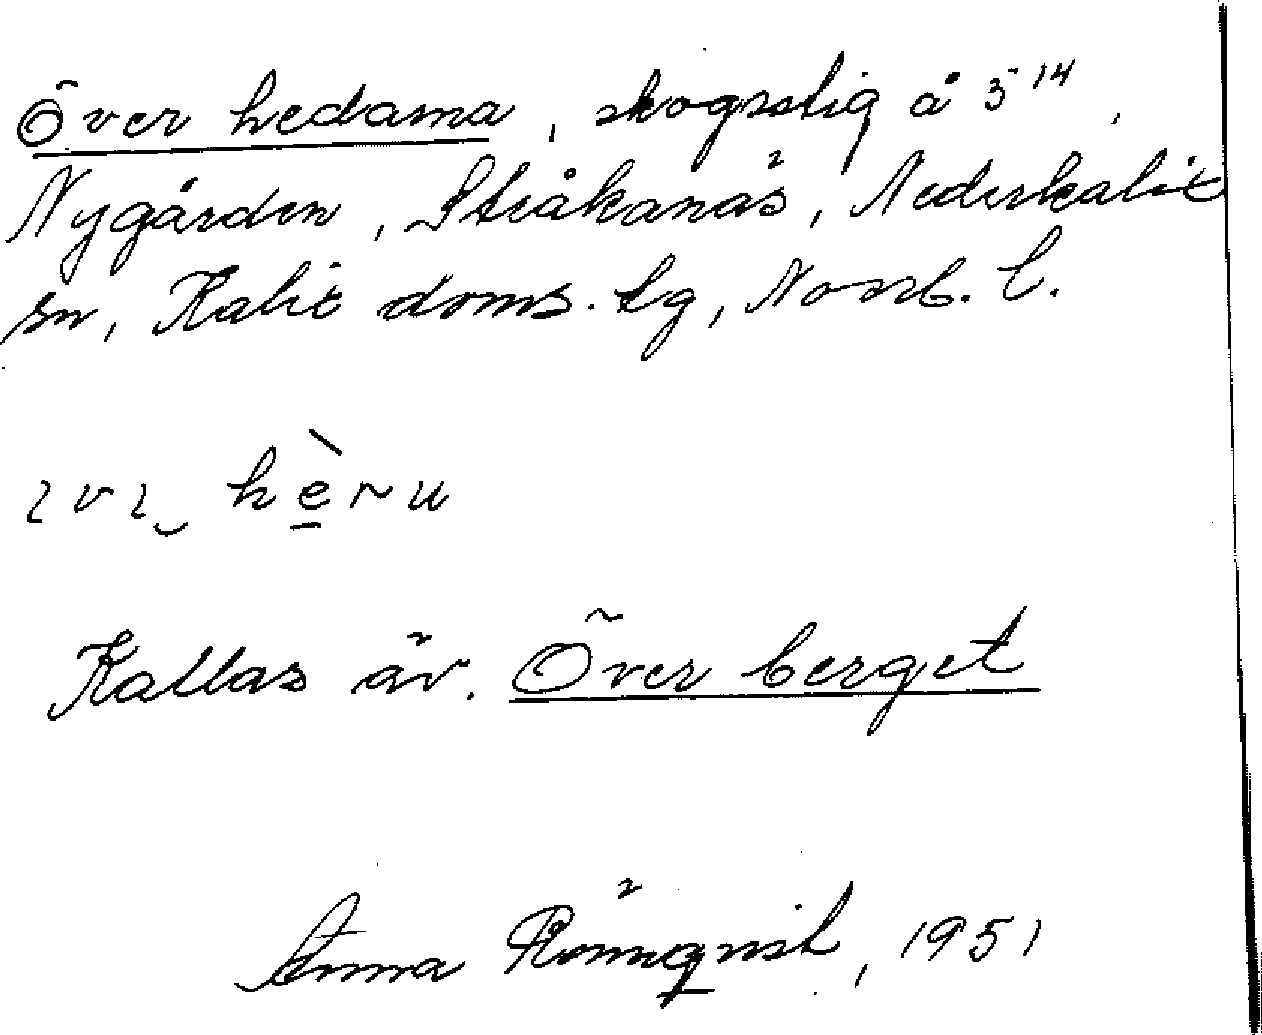 Över hedarna, skogsstig å 5¹⁴,
Nygården, Stråkanäs, Nederkalix
sn, Kalix doms. tg, Norrb. l.
Kallas äv. Över berget
Anna Rönnqvist, 1951